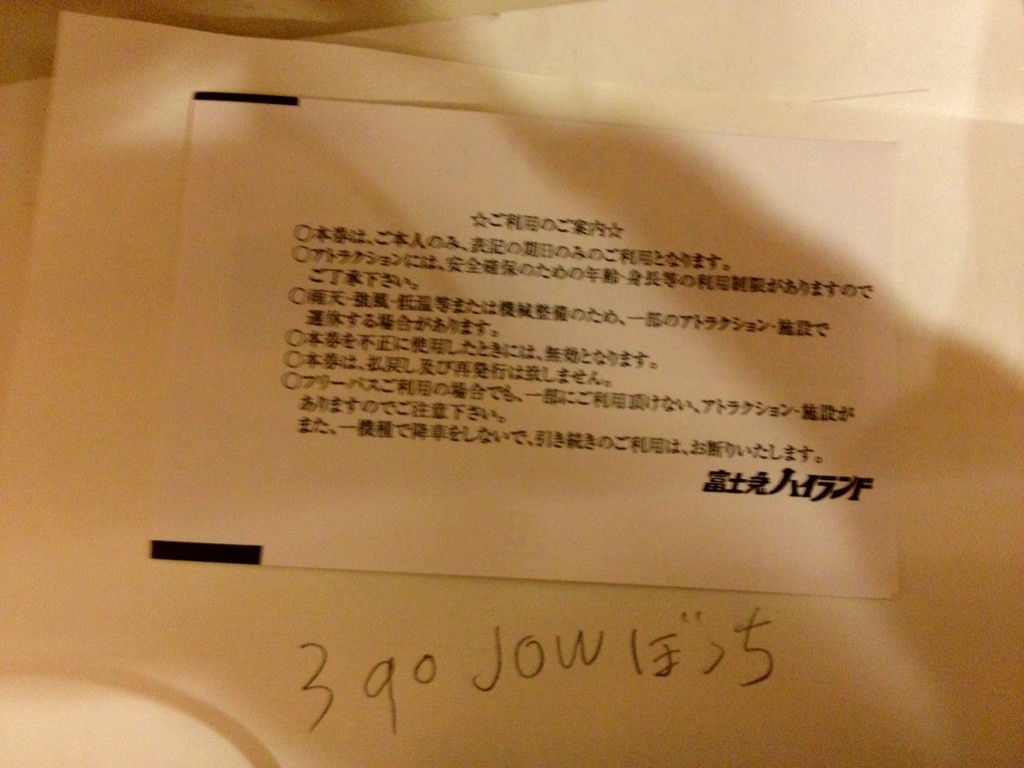 ☆ご利用のご案内☆
○本券は、ご本人のみ、表記の期日のみのご利用となります。
○アトラクションには、安全確保のための年齢・身長等の利用制限がありますので
ご了承下さい。
○雨天・強風・低温等または機械整備のため、一部のアトラクション・施設で
運休する場合があります。
○本券を不正に使用したときには、無効となります。
○本券は、払戻し及び再発行は致しません。
○フリーパスご利用の場合でも、一部にご利用頂けない、アトラクション・施設が
ありますのでご注意下さい。
また、一機種で降車をしないで、引き続きのご利用は、お断りいたします。
富士急ハイランド
3qo JOW ぼっち